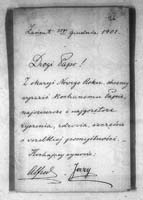 grudnia 1901.
Drogi Papo!
Z okazyi Nowego Roku, chcemy
wyrazić Kochanemu Papie,
najszczersze i najgorętsze
życzenia, zdrowia, szczęścia
i wszelkiej pomyślności. –
Kochający synowie.
Alfred Jerzy